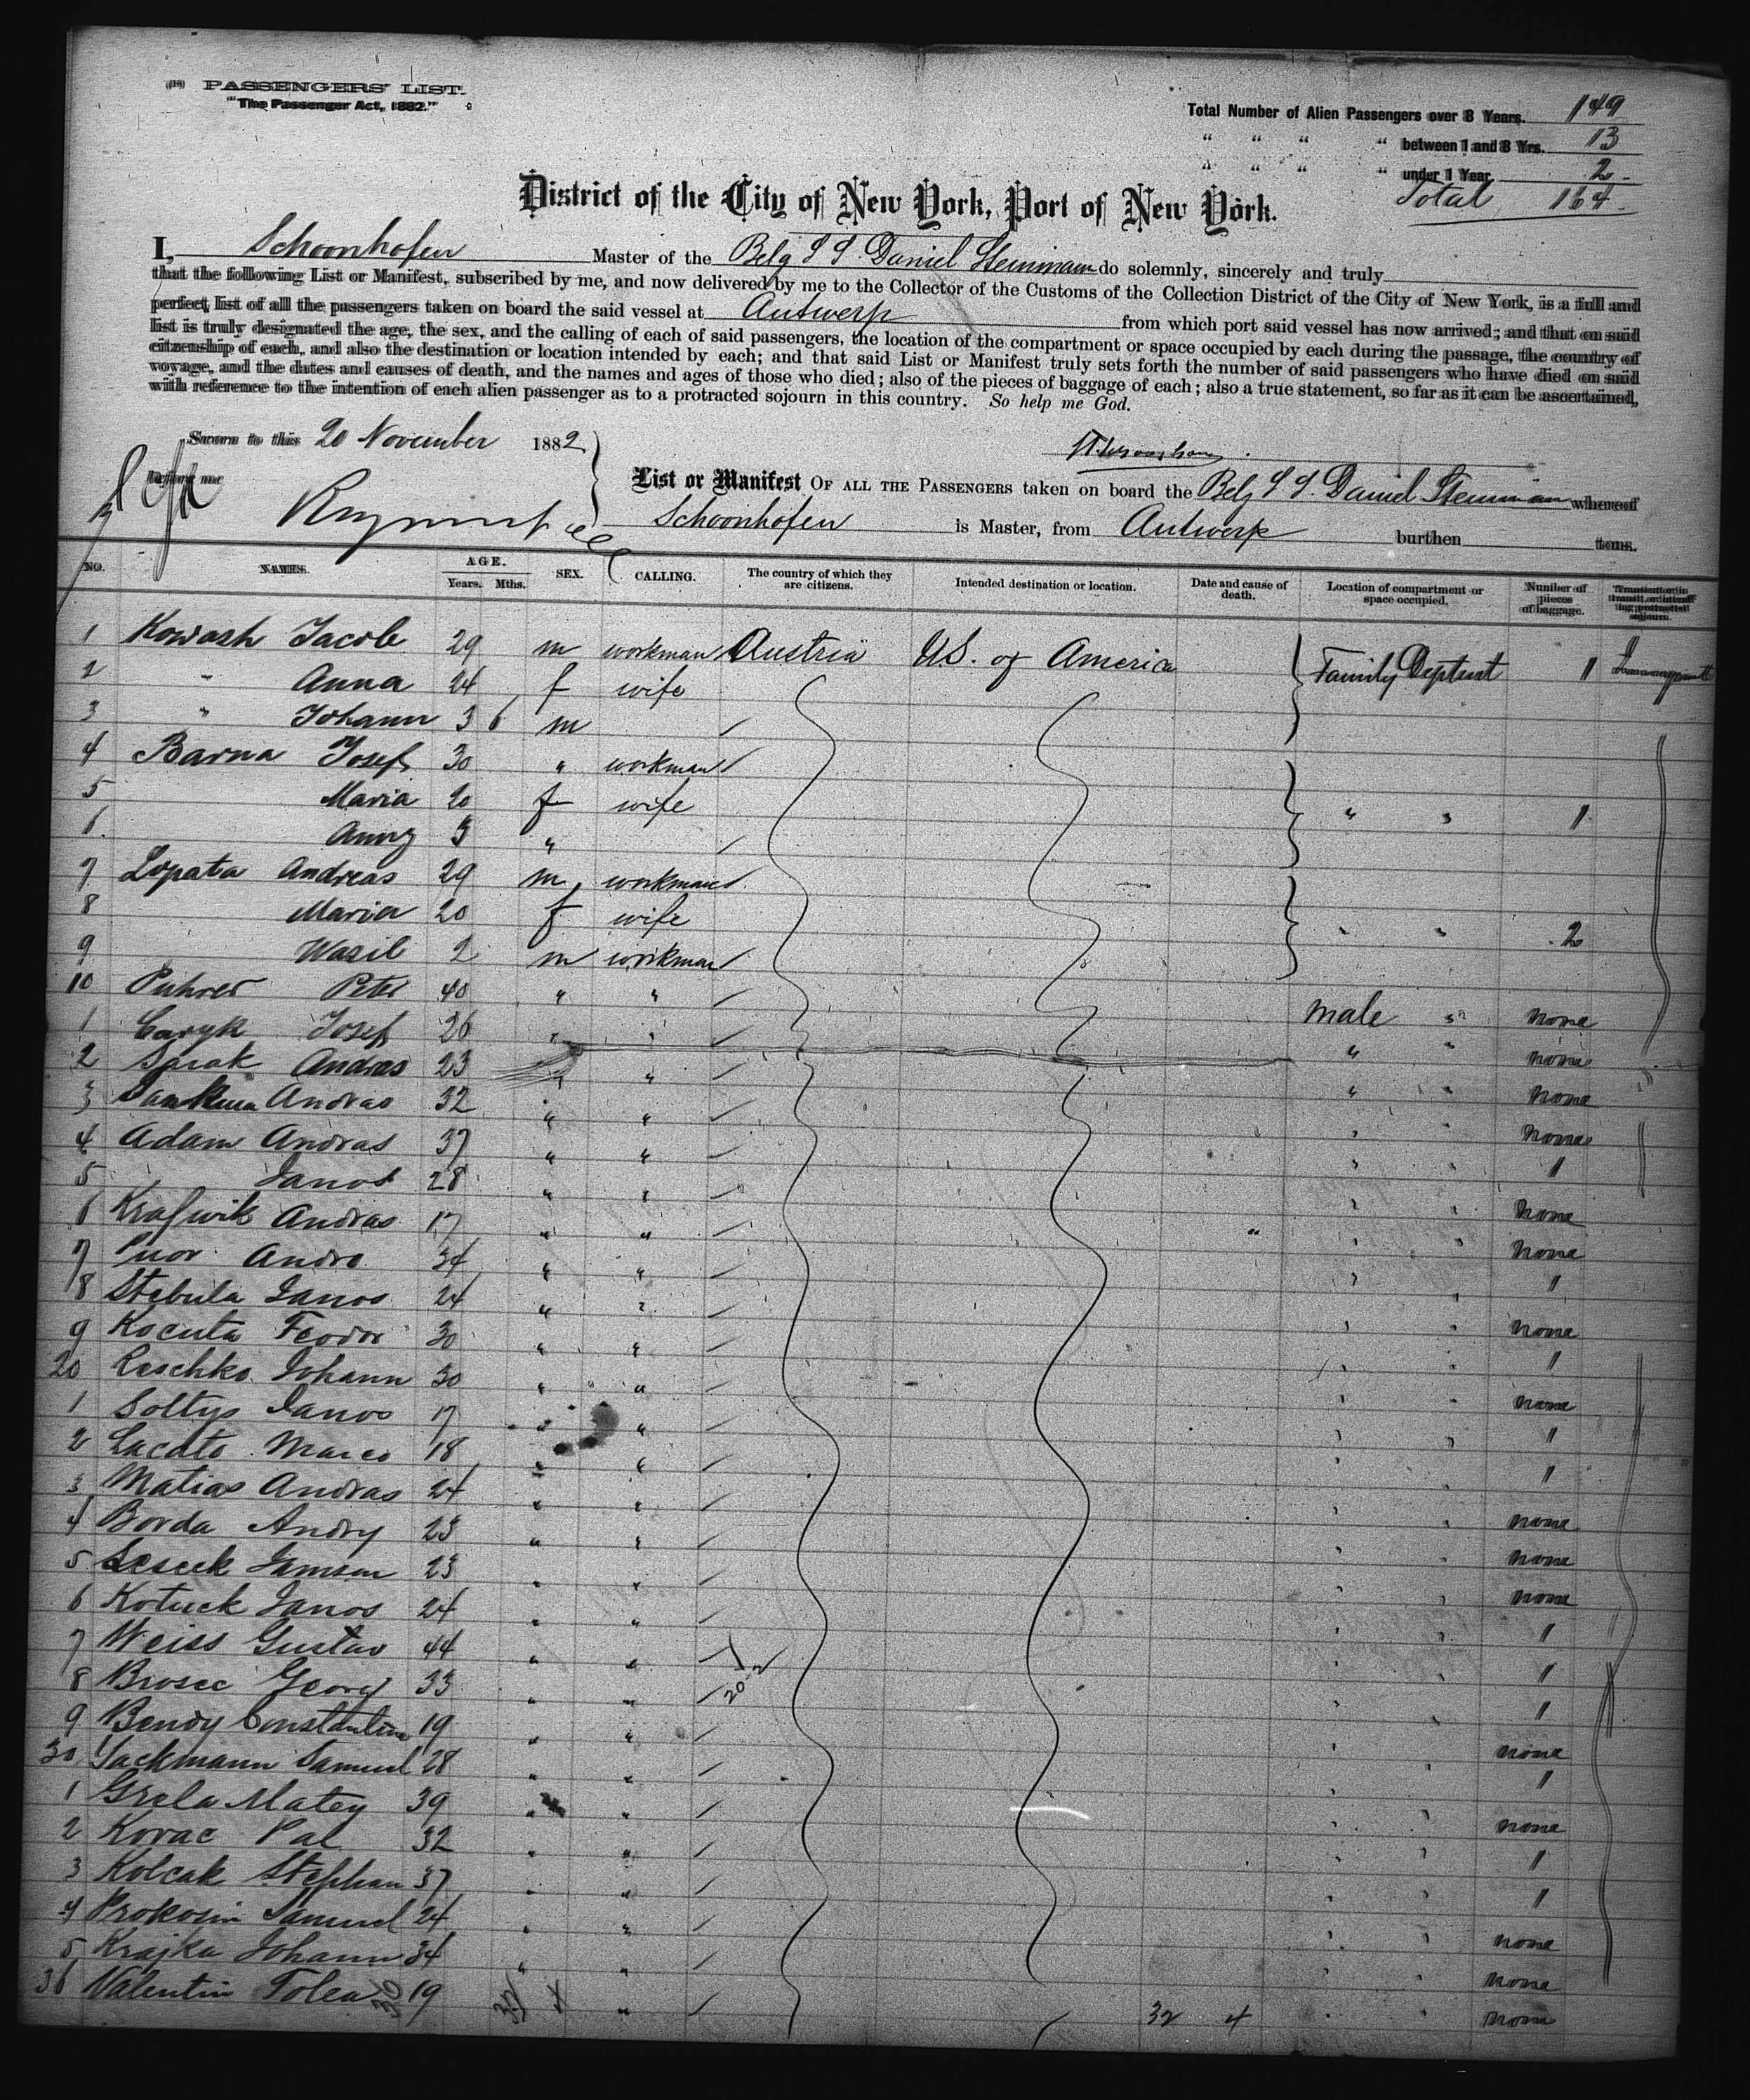 PASSENGERS' LIST.
"The Passenger Act, 1882."
Total Number of Alien Passengers over 8 Years. 149
" " " " between 1 and 8 Yrs. 13
" " " " under 1 Year 2
Total 164
District of the City of New York, Port of New York.
I, Schoonhofen Master of the Belg S S. Daniel Steinmann do solemnly, sincerely and truly
that the following List or Manifest, subscribed by me, and now delivered by me to the Collector of the Customs of the Collection District of the City of New York, is a full and
perfect list of all the passengers taken on board the said vessel at Antwerp from which port said vessel has now arrived; and that on said
list is truly designated the age, the sex, and the calling of each of said passengers, the location of the compartment or space occupied by each during the passage, the country of
citizenship of each, and also the destination or location intended by each; and that said List or Manifest truly sets forth the number of said passengers who have died on said
voyage, and the dates and causes of death, and the names and ages of those who died; also of the pieces of baggage of each; also a true statement, so far as it can be ascertained,
with reference to the intention of each alien passenger as to a protracted sojourn in this country. So help me God.
Sworn to this 20 November 1882
Before me
List or Manifest OF ALL THE PASSENGERS taken on board the Belg S S. Daniel Steinmann whereof
Schoonhofen is Master, from Antwerp burthen tons.
NO. NAMES. AGE. Years. Mths. SEX. CALLING. The country of which they are citizens. Intended destination or location. Date and cause of death. Location of compartment or space occupied. Number of pieces of baggage.
1 Kowash Jacob 29 m workman Austria U.S. of America Family Deptmt 1
2 " Anna 24 f wife
3 " Johann 3 6 m
4 Barna Josef 30 " workman
5 Maria 20 f wife " " 1
6 Anny 3 "
7 Lopata Andreas 29 m workman
8 Maria 20 f wife " " 2
9 Wasil 2 m workman
10 Peter 40 " " male " none
1 Josef 26 " " " " none
2 Andras 23 " " " " none
3 Andras 32 " " " " none
4 Adam Andras 37 " " " " 1
5 Janos 28 " " " " none
6 Andras 17 " " " " none
7 Andro 34 " " " " 1
8 Stebula Janos 24 " " " " none
9 Kocuta Feodor 30 " " " " 1
20 Leschko Johann 30 " " " " none
1 Soltys Janos 17 " " " " 1
2 Marco 18 " " " " 1
3 Matias Andras 24 " " " " none
4 Borda Andry 23 " " " " none
5 23 " " " " none
6 Kotuck Janos 24 " " " " 1
7 Weiss Gustav 44 " " " " 1
8 Georg 33 " " " " 1
9 Bendy Constantine 19 " " " " none
30 Jackmann Samuel 28 " " " " 1
1 Grela Matey 39 " " " " none
2 Kovac Pal 32 " " " " 1
3 Kolcak Stephan 37 " " " " 1
4 Prokosin Samuel 24 " " " " none
5 Krajka Johann 34 " " " " none
36 Valentin Tolea 19 " 32 4 " " none